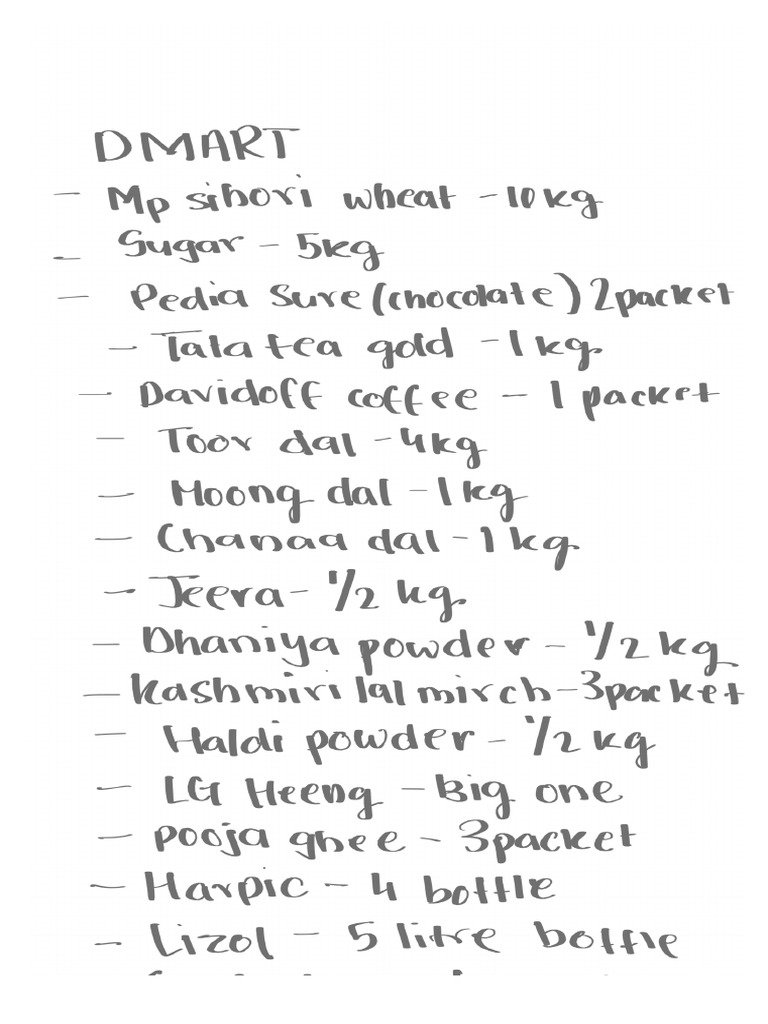 DMART
- Mp sihori wheat - 10kg
- Sugar - 5kg
- Pedia Sure (chocolate) 2packet
- Tata tea gold - 1kg
- Davidoff coffee - 1 packet
- Toor dal - 4kg
- Moong dal - 1kg
- Chanaa dal - 1kg
- Jeera - 1/2 kg
- Dhaniya powder - 1/2 kg
- Kashmiri lal mirch - 3packet
- Haldi powder - 1/2 kg
- LG Heeng - Big one
- Pooja ghee - 3packet
- Harpic - 4 bottle
- Lizol - 5 litre bottle